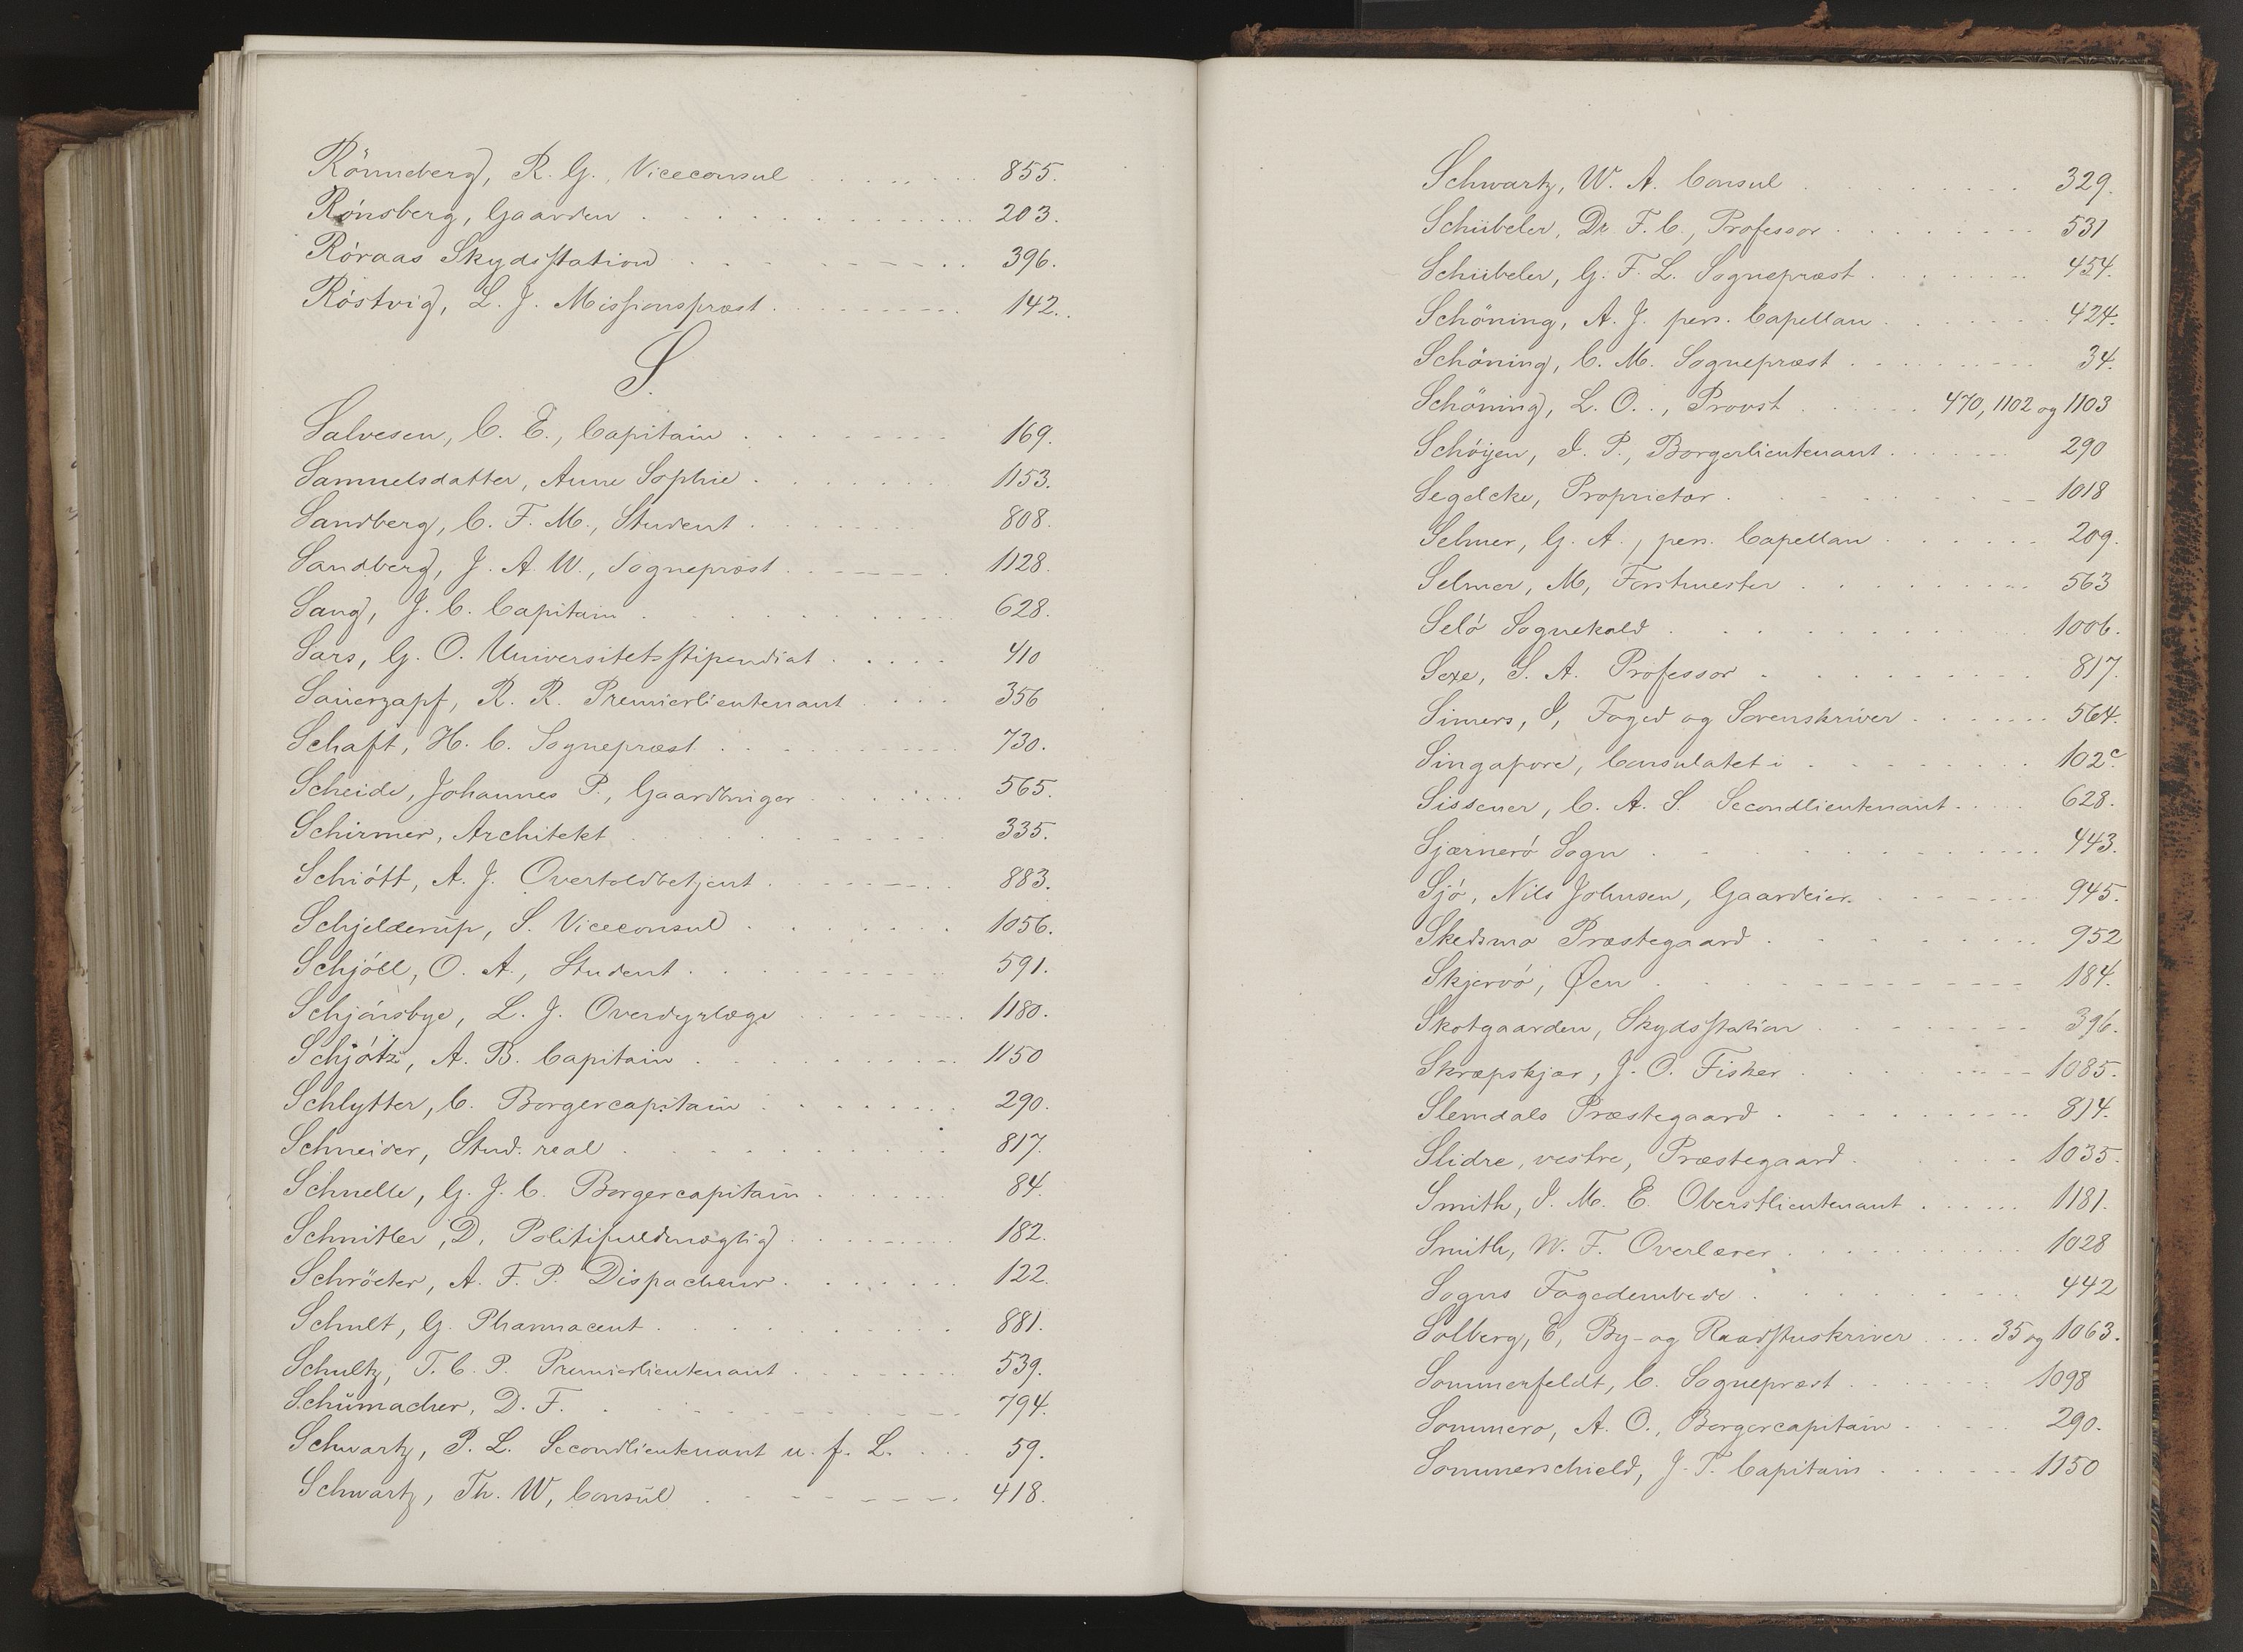 Rönneberg, R. G., Viceconsul 855.
Rónsberg, Gaarden 203.
Róraas Skydsstation 396.
Róstvig, L. J. Missionspræst 142.
S.
Salvesen, C. E., Capitain 169.
Samuelsdatter, Anne Sophie 1153.
Sandberg, C. F. M., Student 808.
Sandberg, J. A. W., Sognepræst 1128.
Sang, J. C. Capitain 628.
Sars, G. O. Universitetsstipendiat 410
Sauerzapf, R. R. Premierlieutenant 356
Schaft, H. C. Sognepræst 730.
Scheide, Johannes P., Gaardbruger 565.
Schirmer, Architekt 335.
Schiótt, A. J. Overtoldbetjent 883.
Schjelderup, S. Viceconsul 1056.
Schjóll, O. A., Student 591.
Schjónsbye, L. J. Overdyrlæge 1180.
Schjótz, A. B. Capitain 1150
Schlytter, C. Borgercapitain 290.
Schneider, Stud. real 817.
Schnelle, G. J. C. Borgercapitain 84.
Schnitler, D. Politifuldmægtig 182.
Schröeter, A. F. P. Dispacheur 122.
Schult, G. Pharmaceut 881.
Schultz, T. C. P. Premierlieutenant 539.
Schumacher, D. F. 794.
Schwartz, P. L. Secondlieutenant u. f. L. 59.
Schwartz, Th. W, Consul 418.
Schwartz, W. A. Consul 329.
Schübeler, Dr. F. C., Professor 531
Schübeler, G. F. L. Sognepræst 454.
Schöning, A. J. pers. Capellan 424.
Schöning, C. M. Sognepræst 34.
Schöning, L. O., Provst 470, 1102 og 1103
Schóyen, I. P., Borgerlieutenant 290
Segelcke, Proprietær 1018
Selmer, G. A., pers. Capellan 209.
Selmer, M, Forstmester 563
Seló Sognekald 1006.
Sexe, S. A. Professor 817.
Simers, S, Foged og Sorenskriver 564.
Singapore, Consulatet i 102c.
Sissener, C. A. S. Secondlieutenant 628.
Sjærneró Sogn 443.
Sjó, Nils Johnsen, Gaardeier 945.
Skedsmo Præstegaard 952
Skjervó, Øen 184.
Skotgaarden, Skydsstation 396.
Skræpskjær, J. O. Fisker 1085.
Slemdals Præstegaard 814.
Slidre, vestre, Præstegaard 1035.
Smith, I. M. E. Oberstlieutenant 1181.
Smith, W. F. Overlærer 1028
Sogns Fogedembede 442
Solberg, E, By- og Raadstuskriver 35 og 1063.
Sommerfeldt, C. Sognepræst 1098
Sommero, A. O., Borgercapitain 290.
Sommerschield, J. T. Capitain 1150